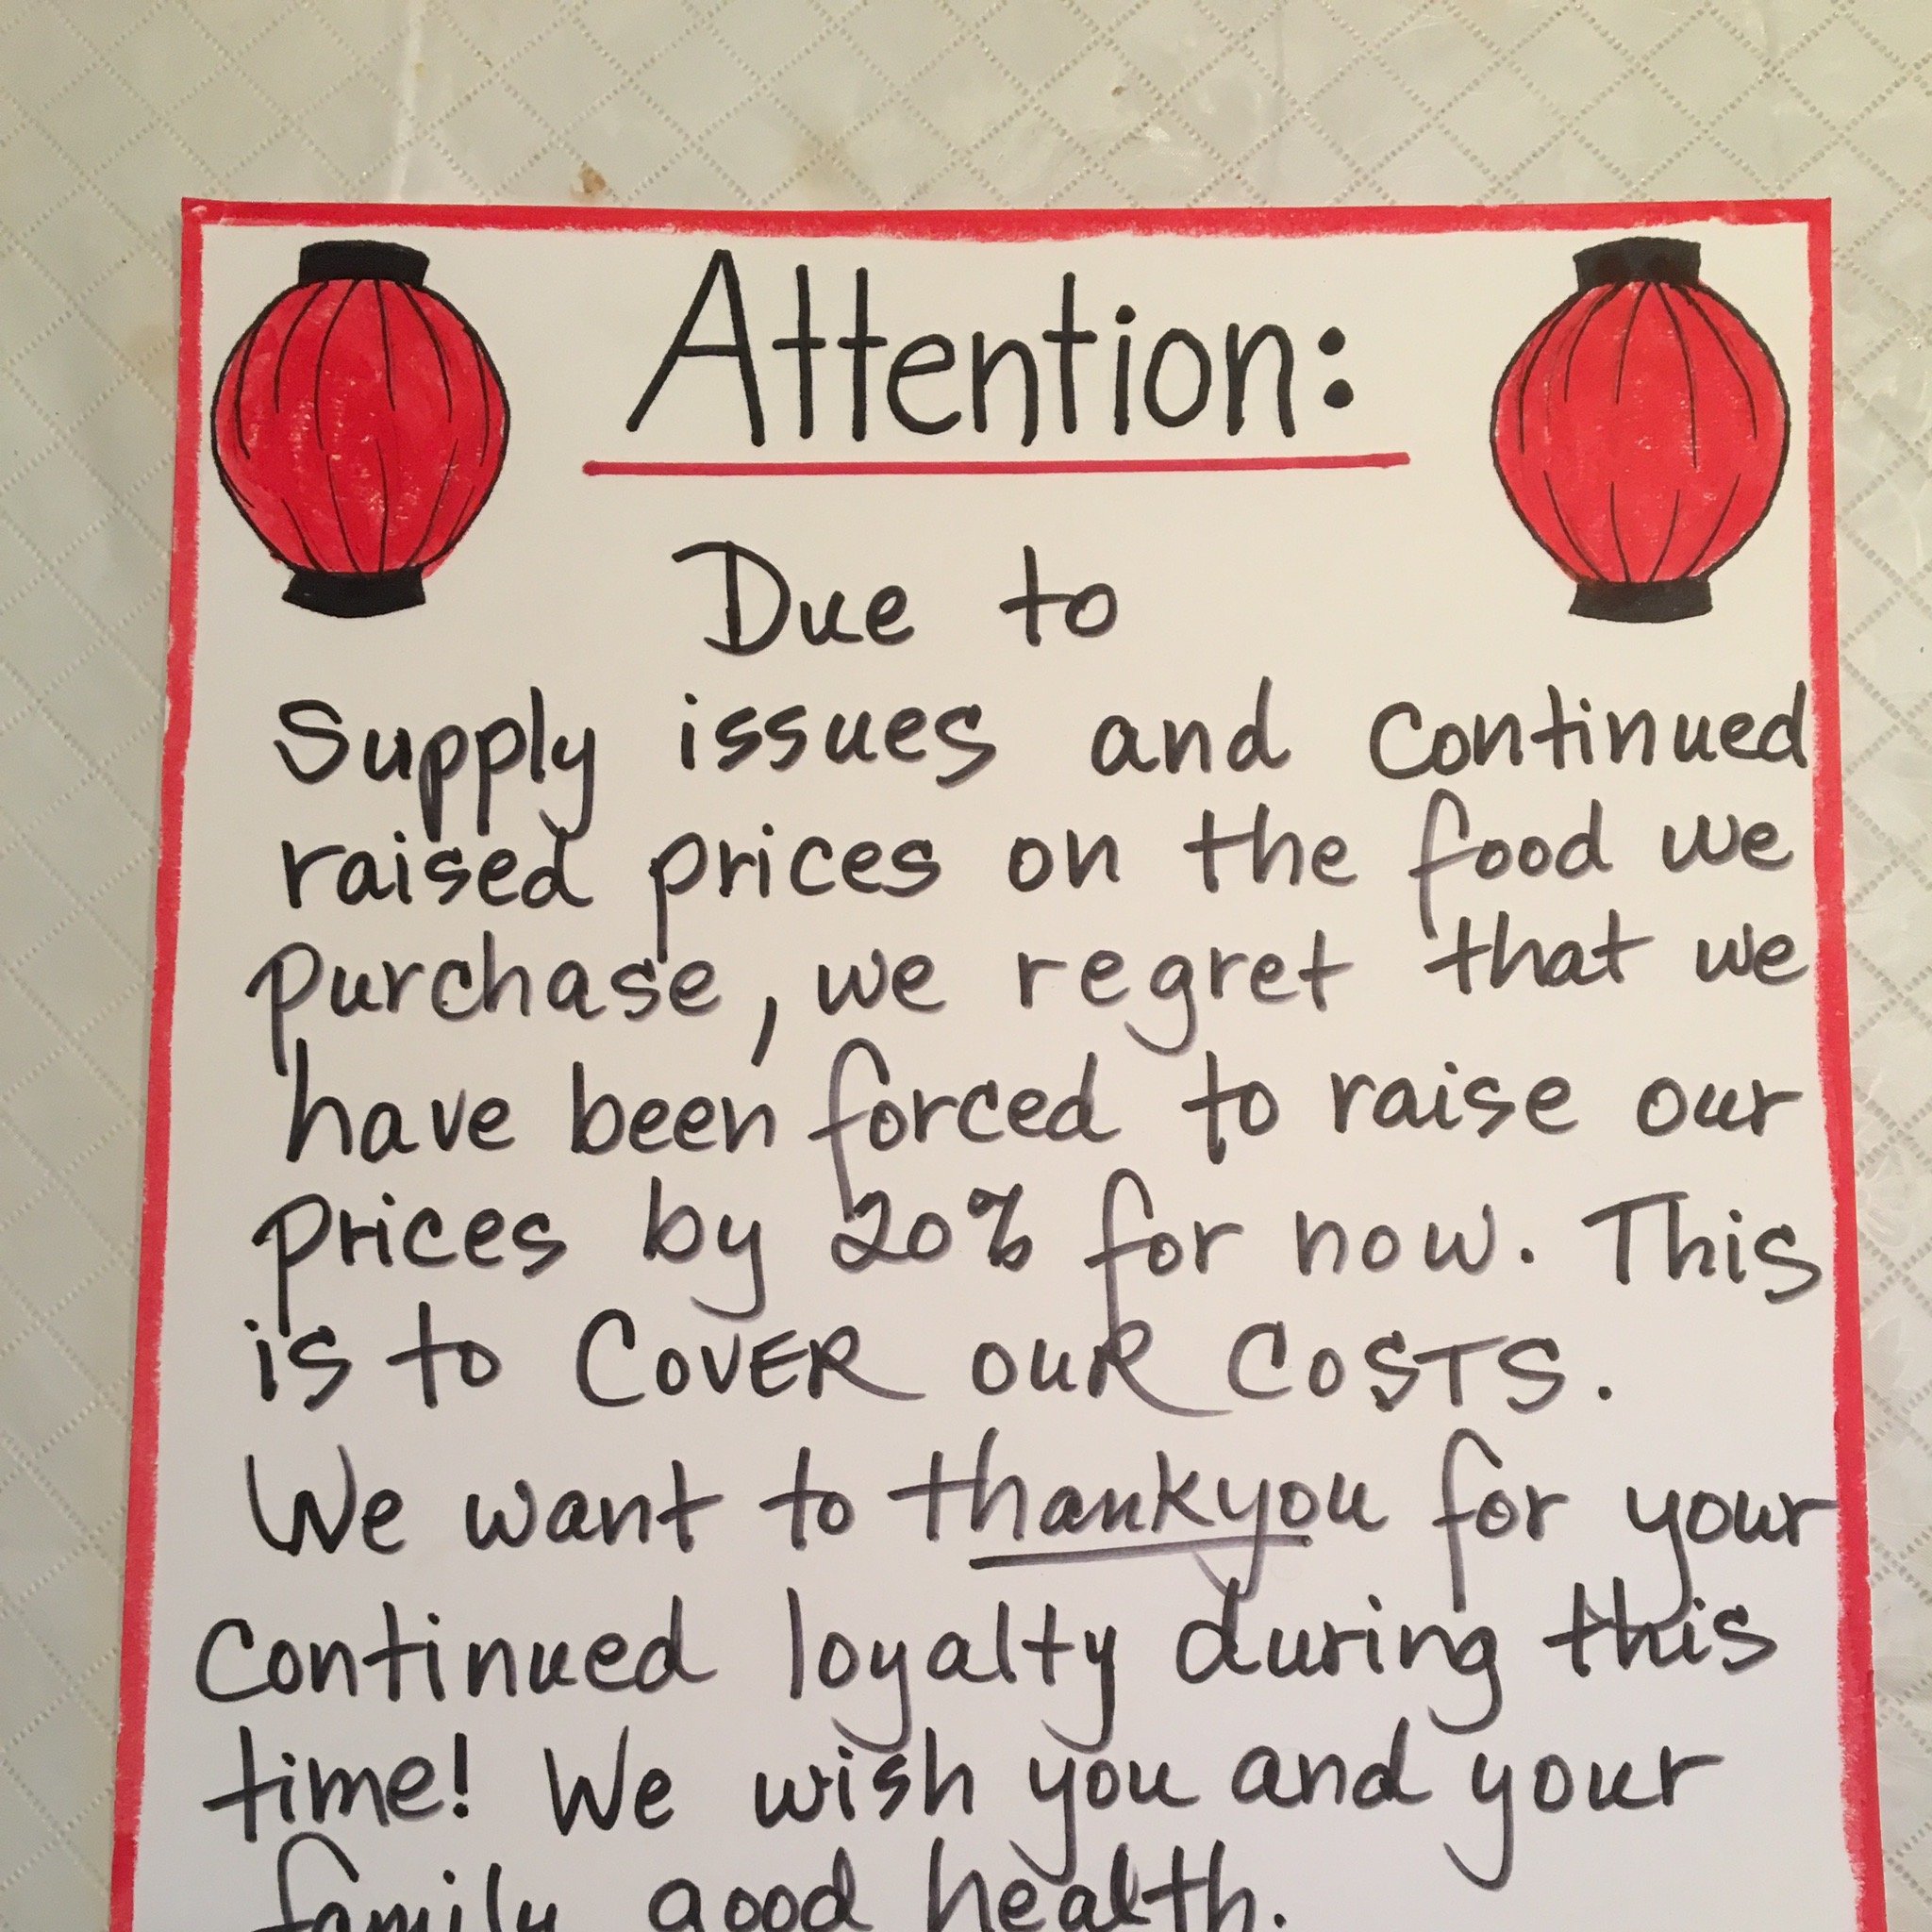 Attention:
Due to
Supply issues and Continued
raised prices on the food we
purchase, we regret that we
have been forced to raise our
prices by 20% for now. This
is to COVER OUR COSTS.
We want to thankyou for your
Continued loyalty during this
time! We wish you and your
family good health.